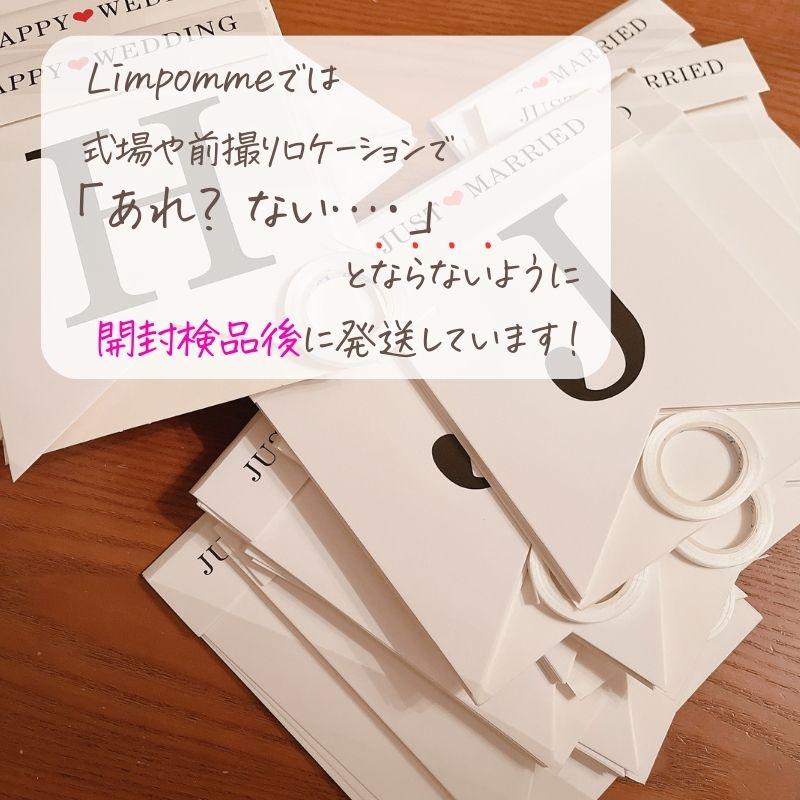 HAPPY❤WEDDING
HAPPY❤WEDDING
H
Limpommeでは
式場や前撮りロケーションで
「あれ? ない・・・・」
とならないように
開封検品後に発送しています!
MARRIED
MARRIED
JUST❤MARRIED
J
JUST